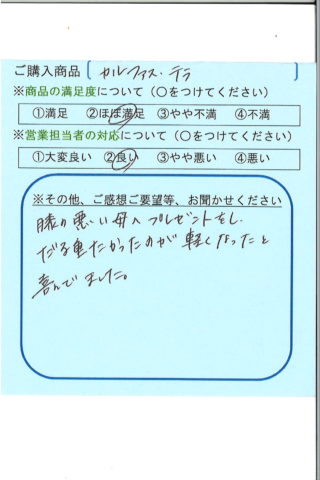 ご購入商品 〔 カルファス・テラ 〕
※商品の満足度について（○をつけてください）
①満足 ②ほぼ満足 ③やや不満 ④不満
※営業担当者の対応について（○をつけてください）
①大変良い ②良い ③やや悪い ④悪い
※その他、ご感想ご要望等、お聞かせください
膝の悪い母へプレゼントをし、
だる重たかったのが軽くなったと
喜んでました。